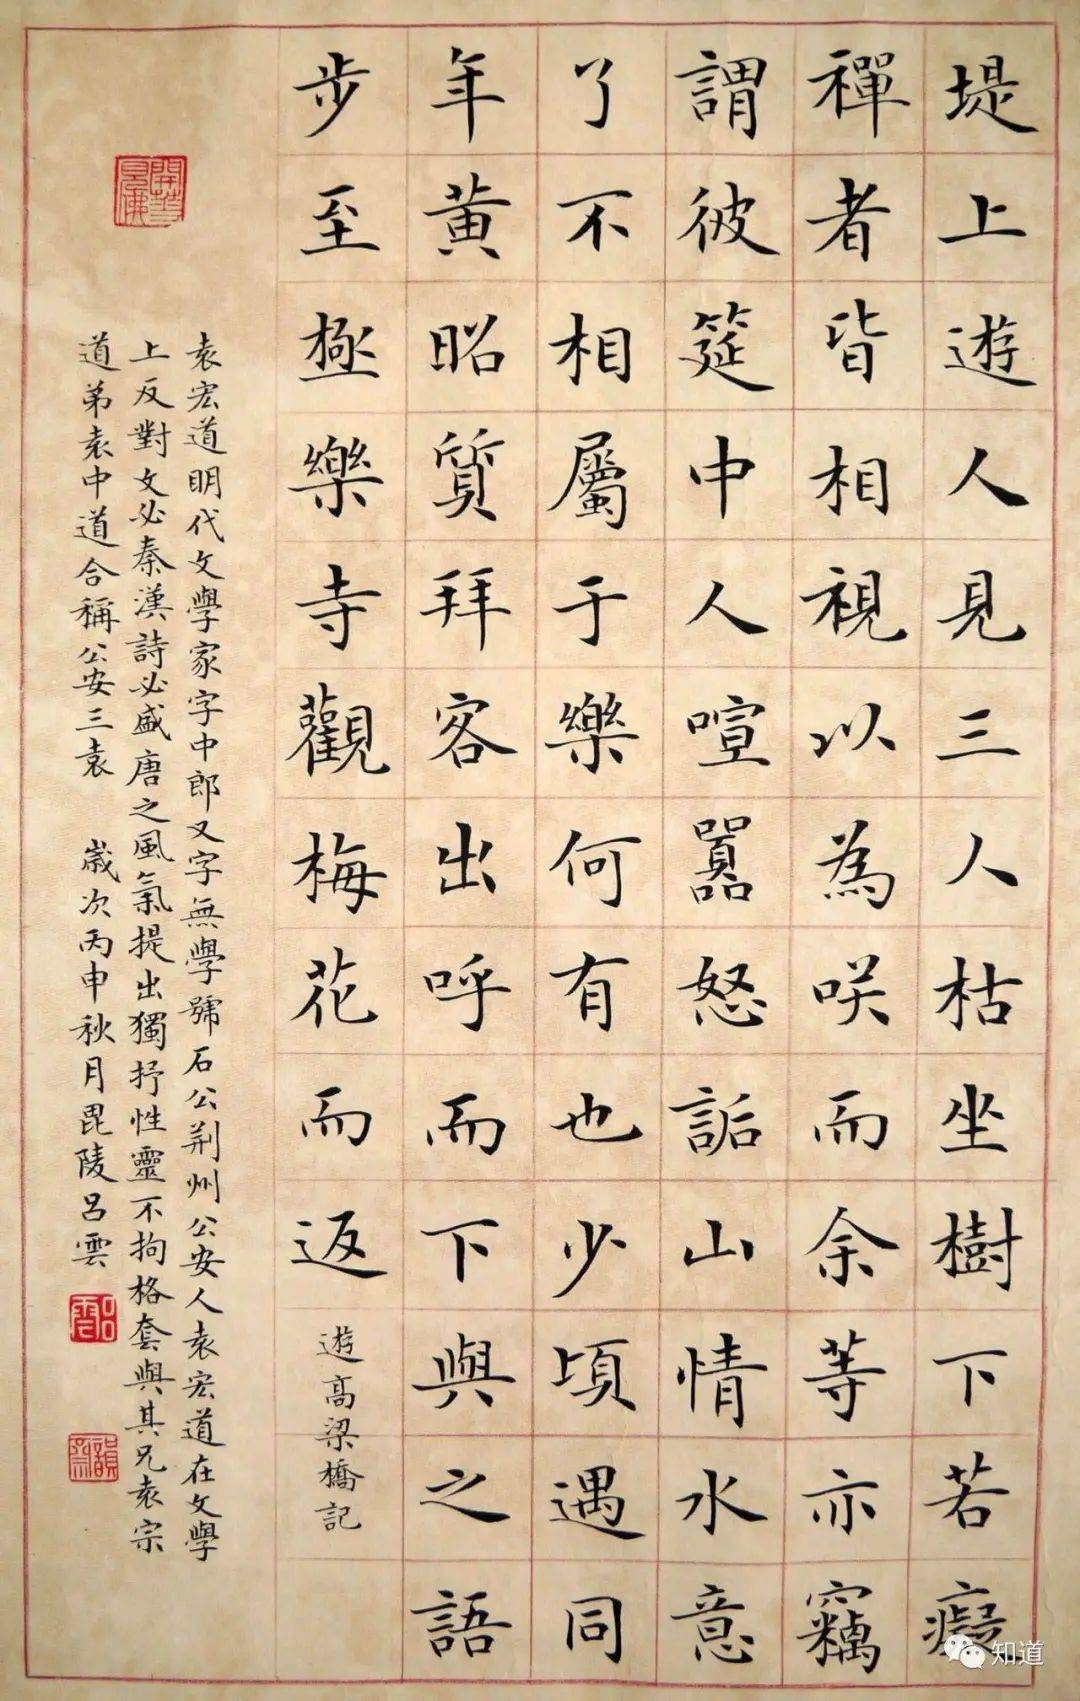 堤上遊人見三人枯坐樹下若癡
禪者皆相視以為咲而余等亦竊
謂彼筵中人喧囂怒詬山情水意
了不相屬于樂何有也少頃遇同
年黃昭質拜客出呼而下與之語
步至極樂寺觀梅花而返
遊高梁橋記
袁宏道明代文學家字中郎又字無學號石公荊州公安人袁宏道在文學
上反對文必秦漢詩必盛唐之風氣提出獨抒性靈不拘格套與其兄袁宗
道弟袁中道合稱公安三袁 歲次丙申秋月毘陵呂雲
呂雲
知道